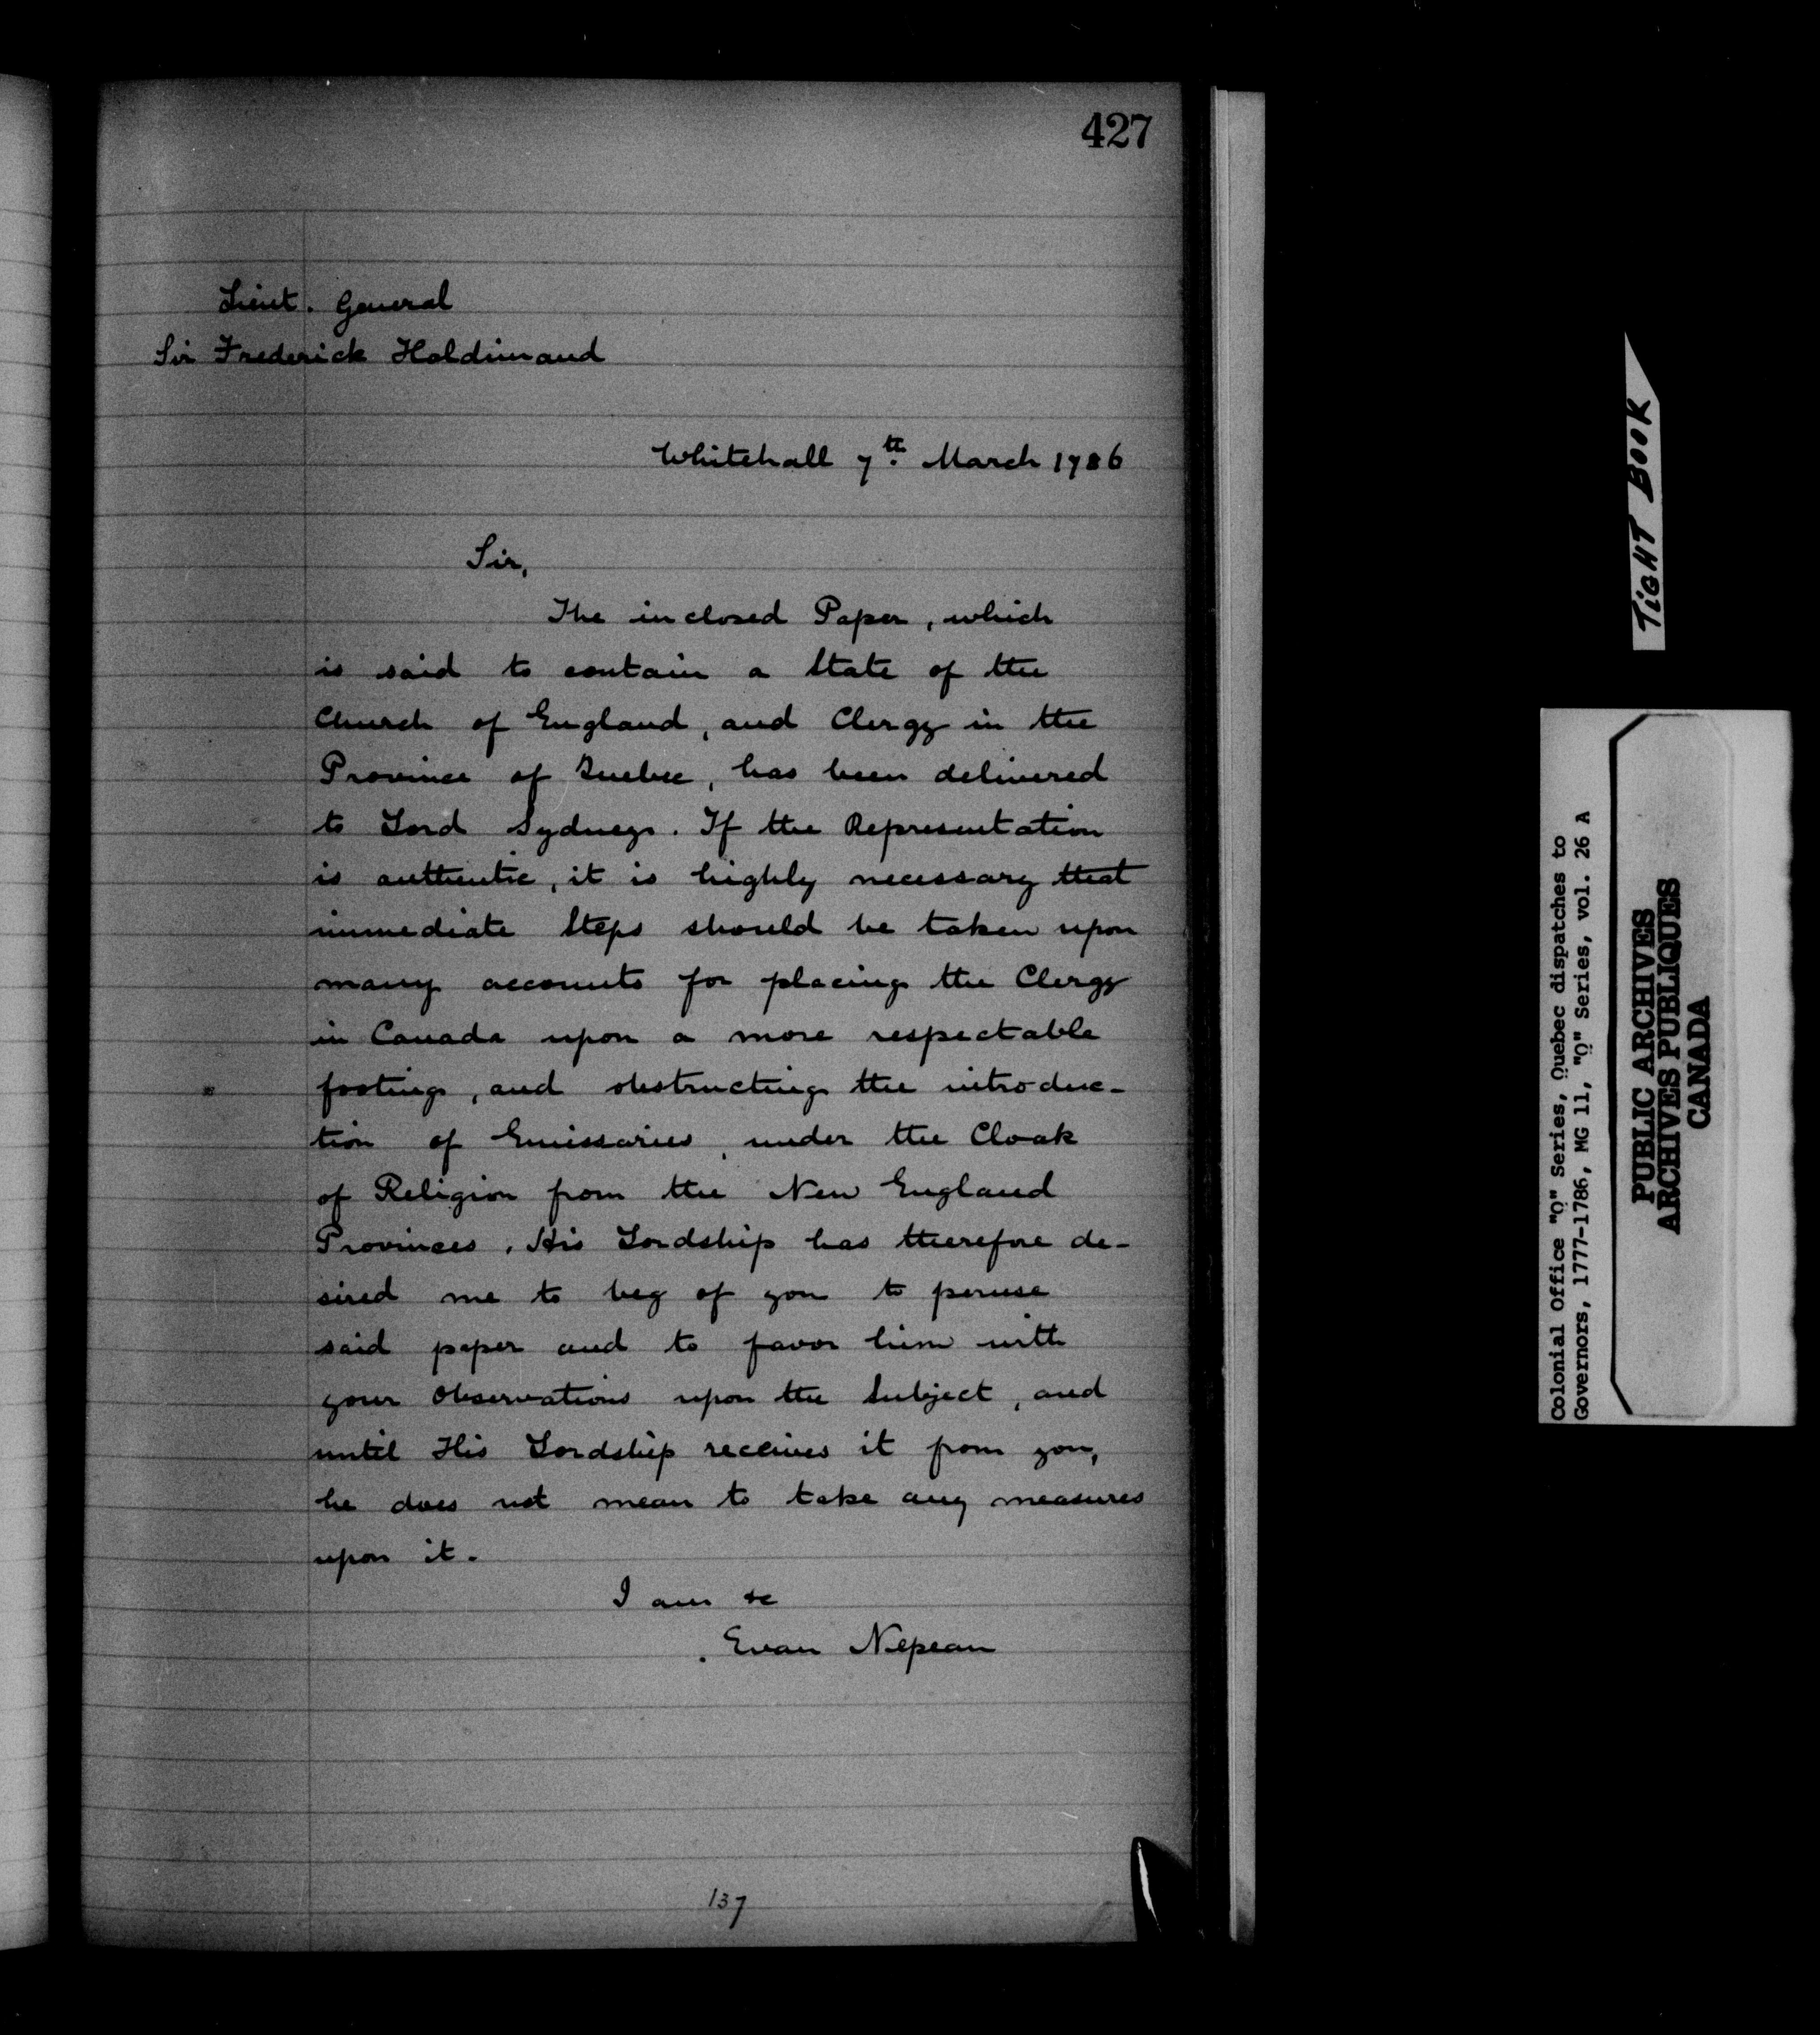 427
Lieut. General
Sir Frederick Haldimand
Whitehall 7th March 1786
Sir,
The inclosed Paper, which
is said to contain a State of the
Church of England, and Clergy in the
Province of Quebec, has been delivered
to Lord Sydney. If the Representation
is authentic, it is highly necessary that
immediate Steps should be taken upon
many accounts for placing the Clergy
in Canada upon a more respectable
footing, and obstructing the introduc-
tion of Emissaries, under the Cloak
of Religion from the New England
Provinces. His Lordship has therefore de-
sired me to beg of you to peruse
said paper and to favor him with
your Observations upon the Subject, and
until His Lordship receives it from you,
he does not mean to take any measures
upon it.
I am &c
Evan Nepean
137
TIGHT BOOK
Colonial Office "Q" Series, Quebec dispatches to
Governors, 1777-1786, MG 11, "Q" Series, vol. 26 A
PUBLIC ARCHIVES
ARCHIVES PUBLIQUES
CANADA